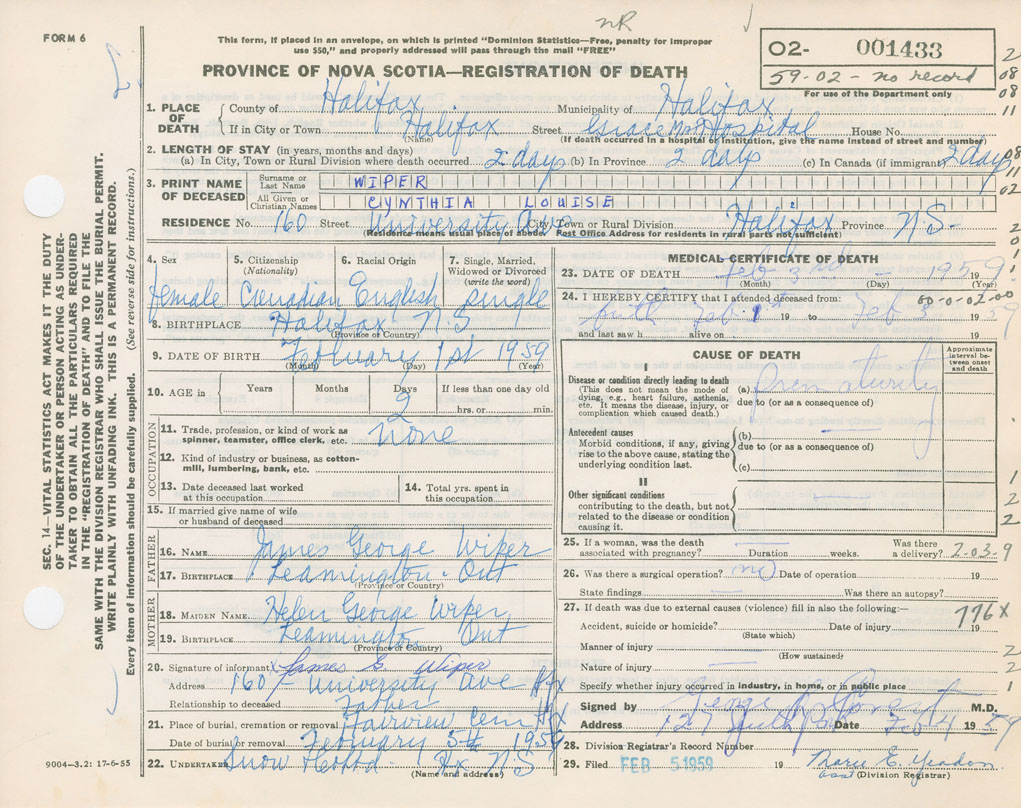 nR
FORM 6
This form, if placed in an envelope, on which is printed "Dominion Statistics—Free, penalty for improper
use $50," and properly addressed will pass through the mail "FREE"
PROVINCE OF NOVA SCOTIA—REGISTRATION OF DEATH
O2- 001433
59-02 - no record
For use of the Department only
1. PLACE OF DEATH
County of Halifax Municipality of Halifax
If in City or Town Halifax Street Grace Hospital House No.
(Name) (If death occurred in a hospital or institution, give the name instead of street and number)
2. LENGTH OF STAY (in years, months and days)
(a) In City, Town or Rural Division where death occurred 2 days (b) In Province 2 days (c) In Canada (if immigrant) 2 days
3. PRINT NAME OF DECEASED
Surname or Last Name WIPER
All Given or Christian Names CYNTHIA LOUISE
RESIDENCE No. 160 Street University Ave City, Town or Rural Division Halifax Province N.S.
(Residence means usual place of abode. Post Office Address for residents in rural parts not sufficient)
4. Sex female
5. Citizenship (Nationality) Canadian
6. Racial Origin English
7. Single, Married, Widowed or Divorced (write the word) single
8. BIRTHPLACE Halifax N.S
(Province or Country)
9. DATE OF BIRTH February 1st 1959
(Month) (Day) (Year)
10. AGE in Years Months Days 2 If less than one day old hrs. or min.
OCCUPATION
11. Trade, profession, or kind of work as spinner, teamster, office clerk, etc. none
12. Kind of industry or business, as cotton-mill, lumbering, bank, etc.
13. Date deceased last worked at this occupation
14. Total yrs. spent in this occupation
15. If married give name of wife or husband of deceased
FATHER
16. NAME James George Wiper
17. BIRTHPLACE Leamington - Ont
(Province or Country)
MOTHER
18. MAIDEN NAME Helen George Wiper
19. BIRTHPLACE Leamington Ont
(Province or Country)
20. Signature of informant x James G Wiper
Address 160 - University Ave Hfx
Relationship to deceased Father
21. Place of burial, cremation or removal Fairview Cem Hfx
Date of burial or removal February 5th 1959
22. UNDERTAKER Snow Hx N.S
(Name and address)
MEDICAL CERTIFICATE OF DEATH
23. DATE OF DEATH Feb 3rd - 1959 19
(Month) (Day) (Year)
24. I HEREBY CERTIFY that I attended deceased from: 00-0-02-00
birth Feb 1st 19 to Feb 3 1959
and last saw h alive on 19
CAUSE OF DEATH
Approximate interval between onset and death
I
Disease or condition directly leading to death
(This does not mean the mode of dying, e.g., heart failure, asthenia, etc. It means the disease, injury, or complication which caused death.)
(a) prematurity
due to (or as a consequence of)
Antecedent causes
Morbid conditions, if any, giving rise to the above cause, stating the underlying condition last.
(b)
due to (or as a consequence of)
(c)
II
Other significant conditions
contributing to the death, but not related to the disease or condition causing it.
25. If a woman, was the death associated with pregnancy? Duration weeks. Was there a delivery? 2-03-9
26. Was there a surgical operation? no Date of operation 19
State findings Was there an autopsy?
27. If death was due to external causes (violence) fill in also the following:—
776X
Accident, suicide or homicide? Date of injury 19
(State which)
Manner of injury
(How sustained)
Nature of injury
Specify whether injury occurred in industry, in home, or in public place
Signed by M.D.
Address 127 Date Feb 4 1959
28. Division Registrar's Record Number
29. Filed FEB 5 1959 19 Marie E. Yeadon
asst (Division Registrar)
SEC. 14—VITAL STATISTICS ACT MAKES IT THE DUTY
OF THE UNDERTAKER OR PERSON ACTING AS UNDER-
TAKER TO OBTAIN ALL THE PARTICULARS REQUIRED
IN THE "REGISTRATION OF DEATH" AND TO FILE THE
SAME WITH THE DIVISION REGISTRAR WHO SHALL ISSUE THE BURIAL PERMIT.
WRITE PLAINLY WITH UNFADING INK. THIS IS A PERMANENT RECORD.
Every item of information should be carefully supplied. (See reverse side for instructions.)
9004-3.2: 17-6-55
2
08
08
11
08
11
02
2
0
1
1
2
2
2
2
1